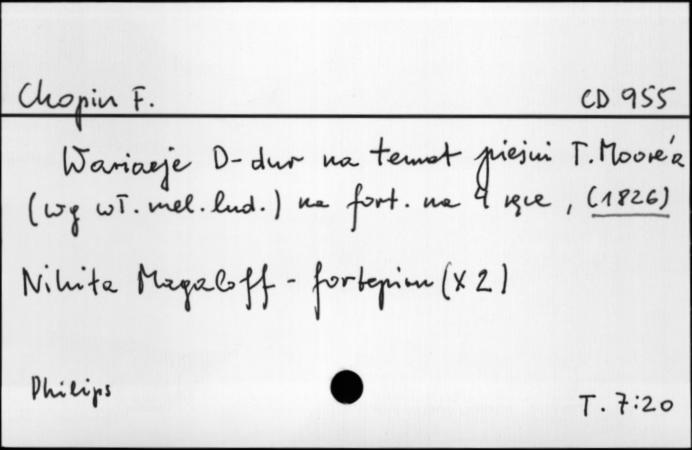 Chopin F. CD 955
Wariacje D-dur na temat pieśni T. Moore'a
(wg wł. mel. lud.) na fort. na 4 ręce, (1826)
Nikita Magaloff - fortepian (x2)
Philips T. 7:20